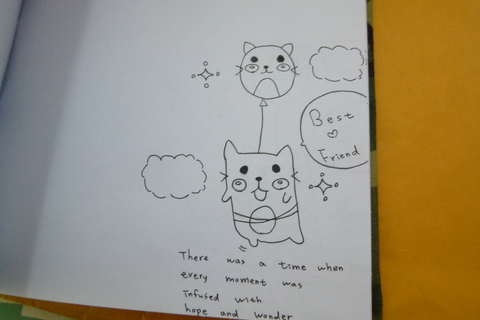 Best
Friend
There was a time when
every moment was
infused with
hope and wonder